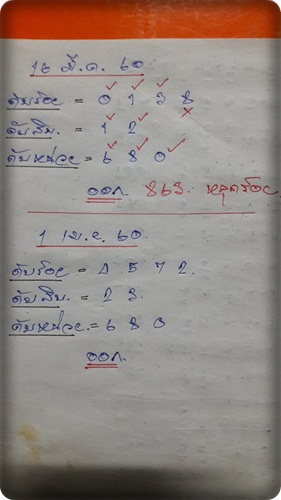 16 มี.ค. 60
ดับร้อย = 0 1 3 8
ดับสิบ. = 1 2
ดับหน่วย = 6 8 0
ออก. 863. หลุดร้อย
1 เม.ย. 60.
ดับร้อย = 4 5 7 2.
ดับสิบ. = 2 3.
ดับหน่วย. = 6 8 0
ออก.